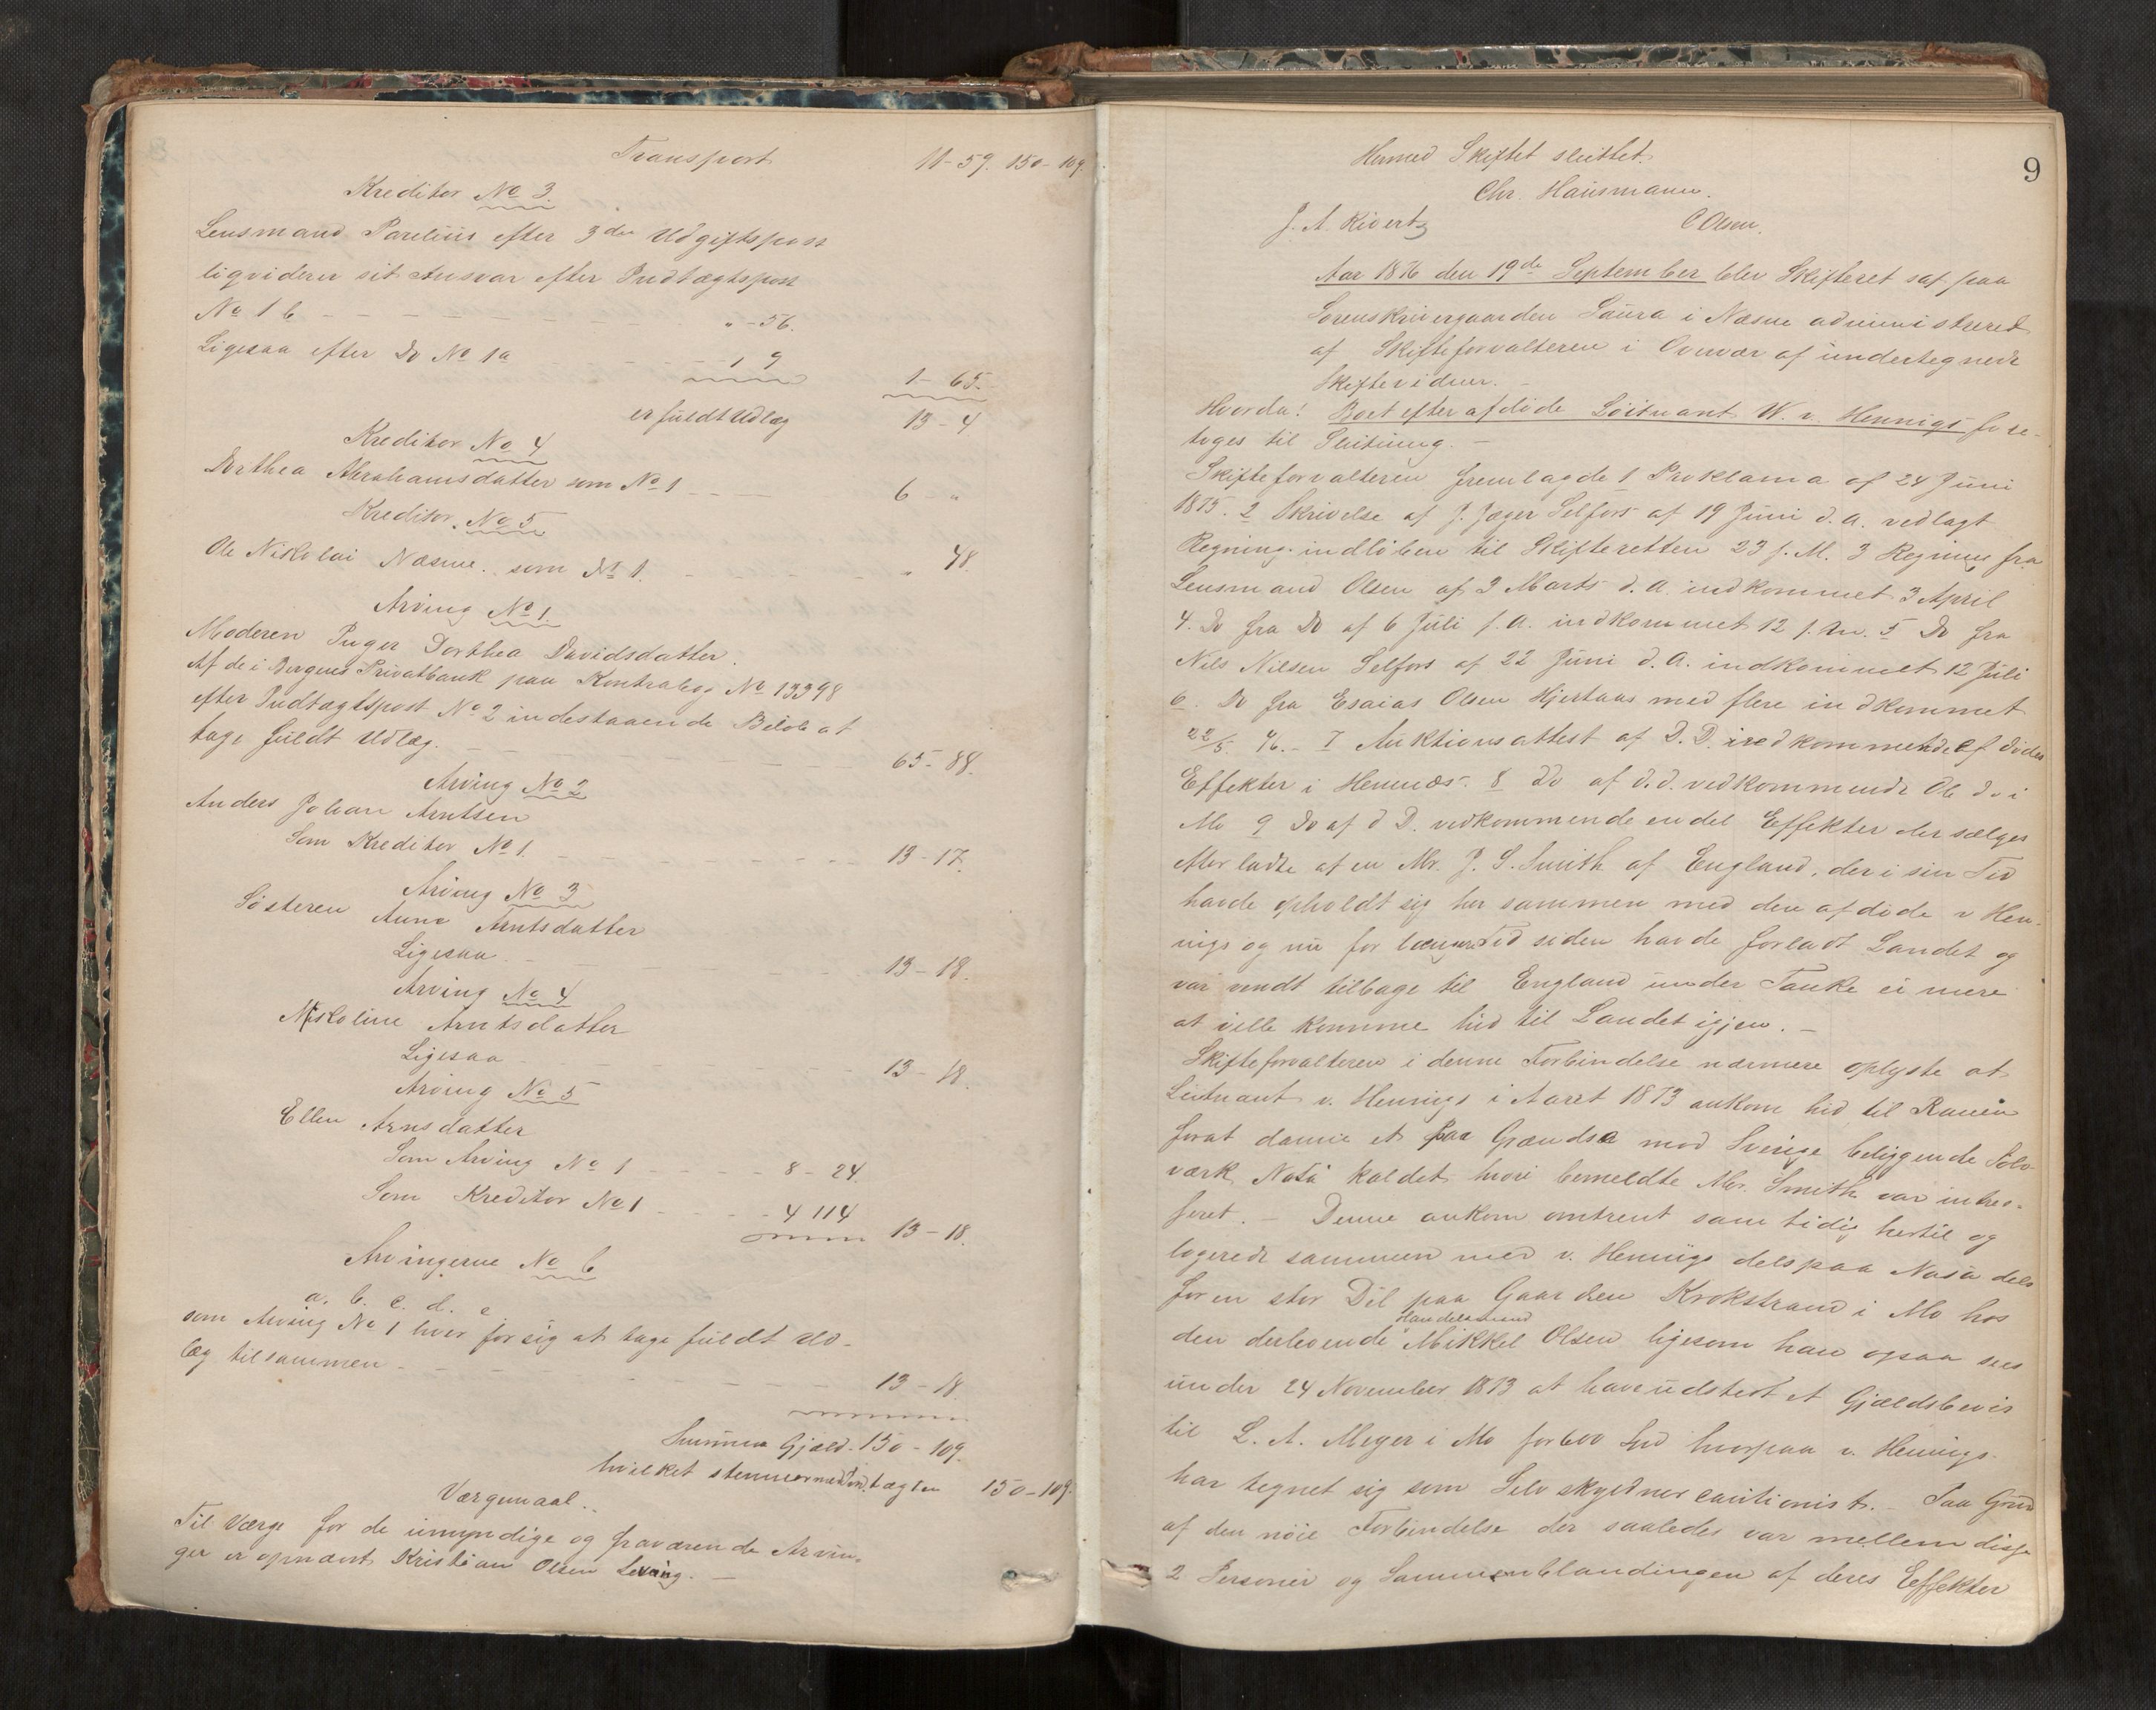 Transport 11-59. 150-109.
Kreditor No 3.
Lensmand Parelius efter 3die Udgiftspost
ligviderer sit Ansvar efter Indtægtspost
No 1 b - - - - - - " - 56.
Ligesaa efter Do No 1a - - - 1 9
1- 65.
er fuldt Udlæg 13 - 4
Kreditor No 4
Dorthea Abrahamsdatter som No 1 - - - 6 - "
Kreditor No 5
Ole Nikolai Næsne. som No 1. - - - " 48.
Arving No 1.
Moderen Inger Dorthea Davidsdatter.
Af de i Bergens Privatbank paa Kontrabog No 13398
efter Indtægtspost No 2 indestaaende Beløb at
tage fuldt Udlæg. - - - 65- 88.
Arving No 2
Anders Johan Arntsen
Som Kreditor No 1. - - - 13 - 17.
Arving No 3
Søsteren Anne Arntsdatter
Ligesaa. - - - 13 - 18.
Arving No 4
Nikoline Arntsdatter
Ligesaa - - - 13 - 18.
Arving No 5
Ellen Arnsdatter
Som Arving No 1 - - - 8 - 24.
Som Kreditor No 1 - - - 4 114 13 - 18.
Arvingerne No 6
a. b. c. d. e
som Arving No 1 hver for sig at tage fuldt Ud-
læg tilsammen - - - 13 - 18.
Summa Gjæld. 150 - 109.
hvilket stemmer med Indtægten 150 - 109.
Værgemaal.
Til Værge for de umyndige og fraværende Arvin-
ger er opnævnt Kristian Olsen Leving. -
9
Hermed Skiftet sluttet.
Chr. Hausmann.
J. A. Kivertz C Olsen.
Aar 1876 den 19de September blev Skifteret sat paa
Sorenskrivergaarden Saura i Næsne administreret
af Skifteforvalteren i Overvær af undertegnede
Skiftevidner. -
Hvorda! Boet efter afdøde Løitnant W. v. Hennigs fore-
toges til Slutning. -
Skifteforvalteren fremlagde 1 Proklama af 24 Juni
1875. 2 Skrivelse af J. Jæger Selfors af 19 Juni d. A. vedlagt
Regning indløben til Skifteretten 23 s. M. 3 Regning fra
Lensmand Olsen af 3 Marts d. A. indkommet 3 April
4. Do fra Do af 6 Juli s. A. indkommet 12 s. M. 5 Do fra
Nils Nilsen Selfors af 22 Juni d. A. indkommet 12 Juli
6. Do fra Esaias Olsen Hjertaas med flere indkommet
22/5 76. - 7 Auktionsattest af D. D. vedkommende Afdødes
Effekter i Hemnæs. 8 Do af d. d. vedkommende do i
Mo 9 Do af d D. vedkommende endel Effekter der sælges
efterladte af en Mr. J. S. Smith af England, der i sin Tid
havde opholdt sig her sammen med den afdøde v Hen-
nigs og nu for længere Tid siden havde forladt Landet og
var vendt tilbage til England under Tanke ei mere
at ville komme hid til Landet igjen. -
Skifteforvalteren i denne Forbindelse nærmere oplyste at
Løitnant v. Hennigs i Aaret 1873 ankom hid til Ranen
forat danne et paa Grændsen mod Sverige beliggende Sølv-
værk Nasa kaldet hvori bemeldte Mr. Smith var intres-
seret. - Denne ankom omtrent samtidig hertil og
logerede sammen med v. Hennigs dels paa Nasa dels
for en stor Del paa Gaarden Krokstrand i Mo hos
den derboende Handelsmand Mikkel Olsen ligesom han ogsaa sees
under 24 November 1873 at have udstedt et Gjældsbevis
til L. A. Meyer i Mo for 600 Spd hvorpaa v. Hennigs
har tegnet sig som Selvskyldnercautionist. - Paa Grund
af den nøie Forbindelse der saaledes var mellem disse
2 Personer og Sammenblandingen af deres Effekter